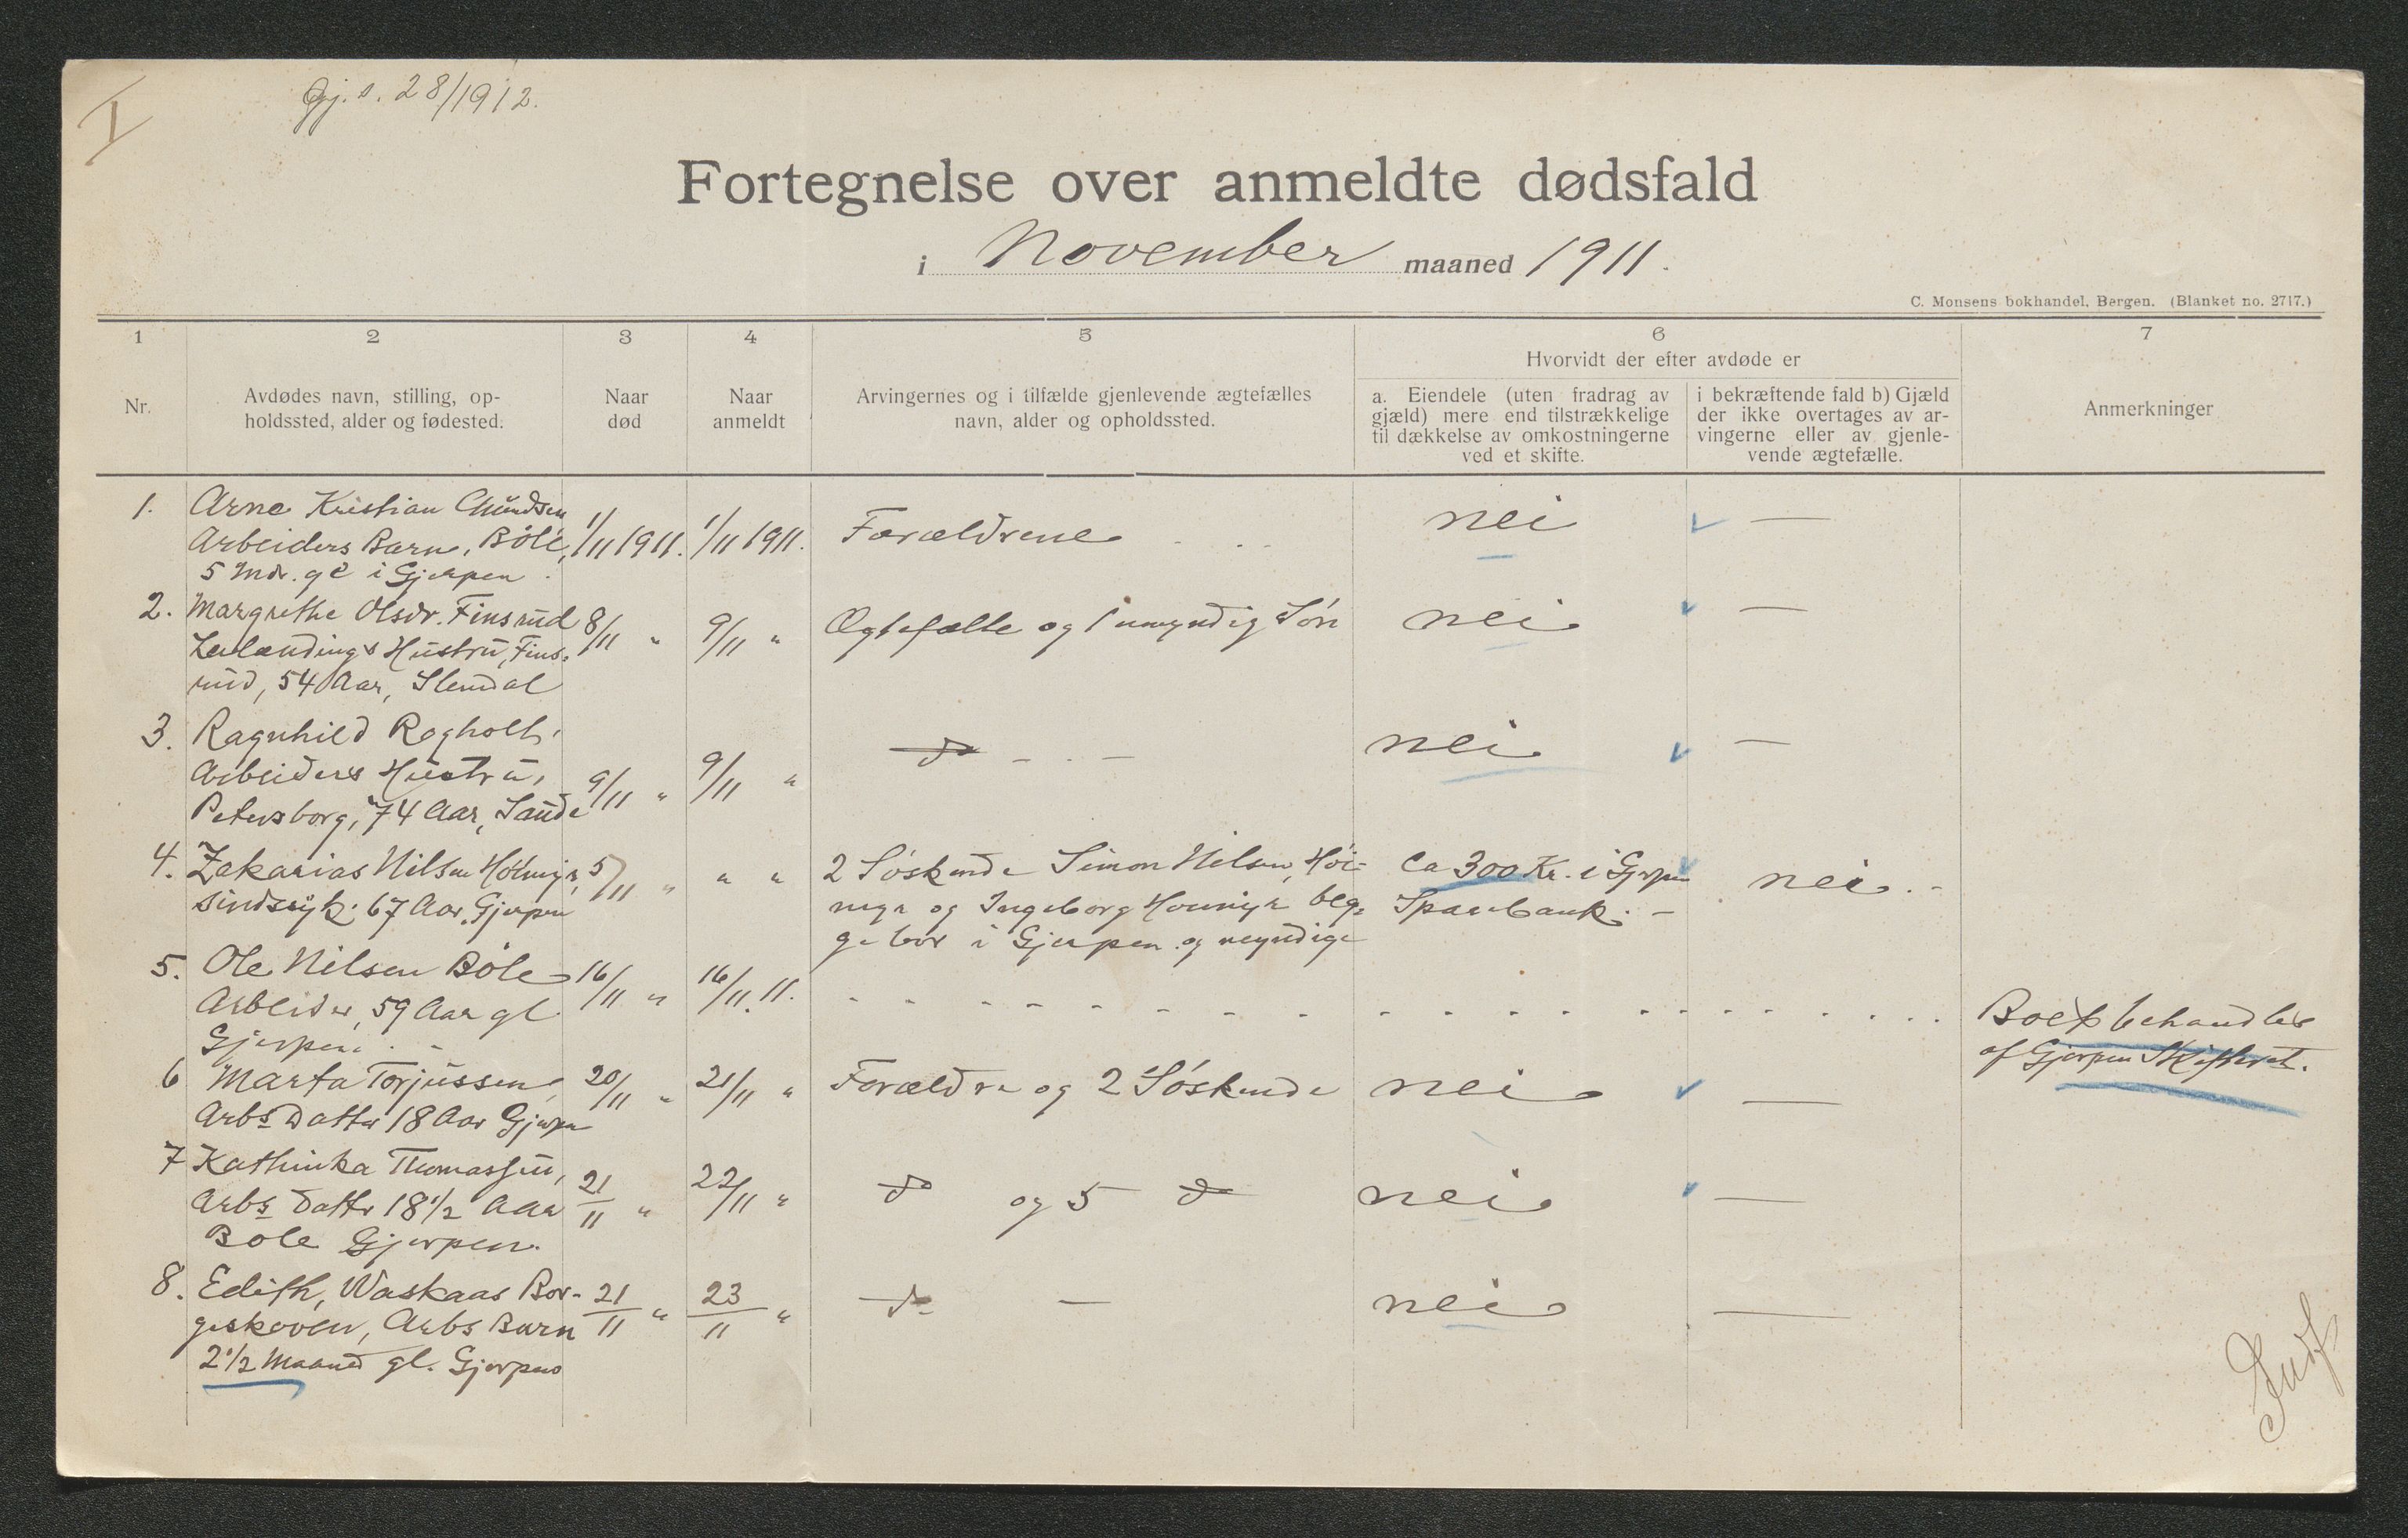 I
Gj. s. 28/1912.
Fortegnelse over anmeldte dødsfald
i November maaned 1911.
C. Monsens bokhandel, Bergen. (Blanket no. 2717.)
1 2 3 4 5 6 7
Nr.
Avdødes navn, stilling, op-
holdssted, alder og fødested.
Naar
død
Naar
anmeldt
Arvingernes og i tilfælde gjenlevende ægtefælles
navn, alder og opholdssted.
Hvorvidt der efter avdøde er
a. Eiendele (uten fradrag av
gjæld) mere end tilstrækkelige
til dækkelse av omkostningerne
ved et skifte.
i bekræftende fald b) Gjæld
der ikke overtages av ar-
vingerne eller av gjenle-
vende ægtefælle.
Anmerkninger
1. Arne Kristian
Arbeiders Barn, Böle, 1/11 1911. 1/11 1911. Forældrene - - nei —
5 Mdr. gl i Gjerpen.
2. Margrethe Olsdr. Finsrud 8/11 " 9/11 " Ægtefælle og 1 umyndig Sön nei —
Leilændings Hustru, Fins-
rud, 54 Aar, Slemdal
3. Ragnhild Rogholt,
Arbeiders Hustru, 9/11 " 9/11 " do - - — nei —
Petersborg, 74 Aar, Sande
4. Zakarias Nilsen 5/11 " " " 2 Söskende Simon Nilsen, Höi- Ca 300 Kr. i Gjerpen nei. -
Sindssyk. 67 Aar. Gjerpen og Ingeborg beg- Sparebank. -
ge bor i Gjerpen og myndige
5. Ole Nilsen Böle 16/11 " 16/11 11. - - - - - - - - - - - -
Arbeider, 59 Aar gl.
Gjerpen. -
Boet behandles
af Gjerpen Skifteret.
6 Marta Torjussen, 20/11 " 21/11 " Forældre og 2 Söskende nei —
Arbs Datter 18 Aar Gjerpen
7 Kathinka Thomassen,
Arbs datter 18 1/2 Aar 21/11 " 22/11 " do og 5 do nei —
Bole Gjerpen.
8. Edith, Waskaas Bor- 21/11 " 23/11 " do — nei —
geskoven, Arbs Barn
2 1/2 Maaned gl. Gjerpen